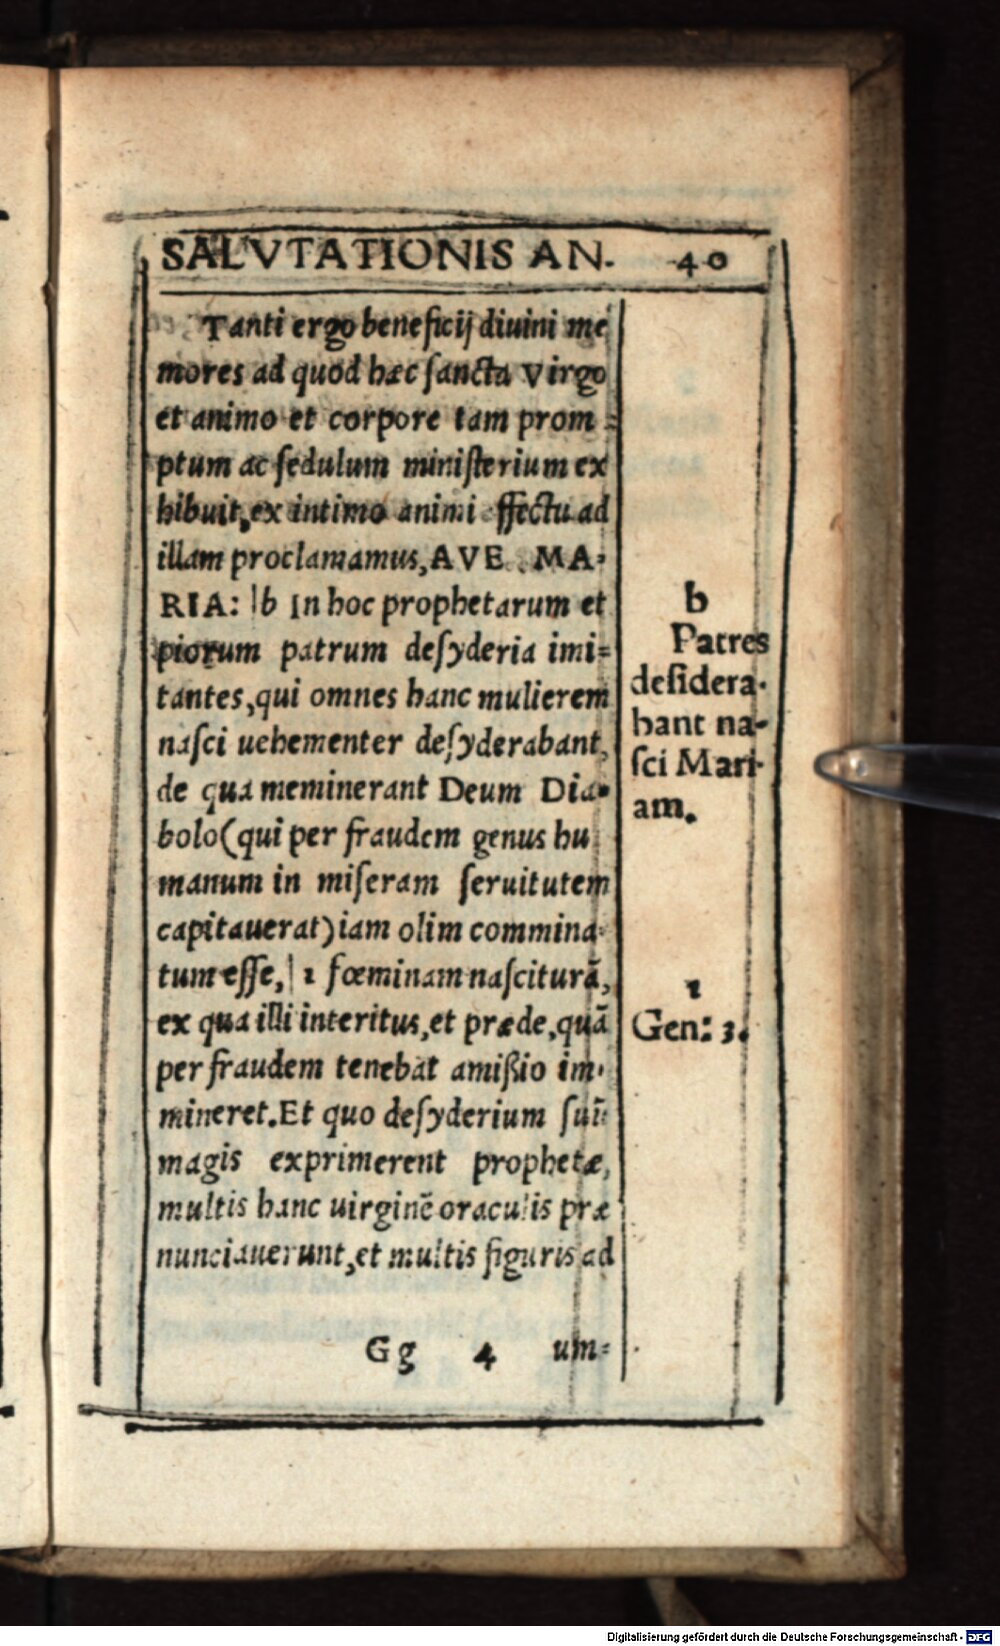 SALVTATIONIS AN. 40
Tanti ergo beneficij diuini me
mores ad quod hæc sancta Virgo
et animo et corpore tam prom=
ptum ac sedulum ministerium ex
hibuit, ex intimo animi effectu ad
illam proclamamus, AVE MA-
RIA: |b In hoc prophetarum et
piorum patrum desyderia imi=
tantes, qui omnes hanc mulierem
nasci uehementer desyderabant,
de qua meminerant Deum Dia-
bolo (qui per fraudem genus hu
manum in miseram seruitutem
capitauerat) iam olim commina-
tum esse, |1 fœminam nasciturā,
ex qua illi interitus, et præde, quā
per fraudem tenebat amißio im-
mineret. Et quo desyderium suū
magis exprimerent prophetæ,
multis hanc uirginē oraculis præ
nunciauerunt, et multis figuris ad
Gg 4 um=
b
Patres
desidera-
bant na-
sci Mari-
am.
1
Gen: 3.
Digitalisierung gefördert durch die Deutsche Forschungsgemeinschaft - DFG